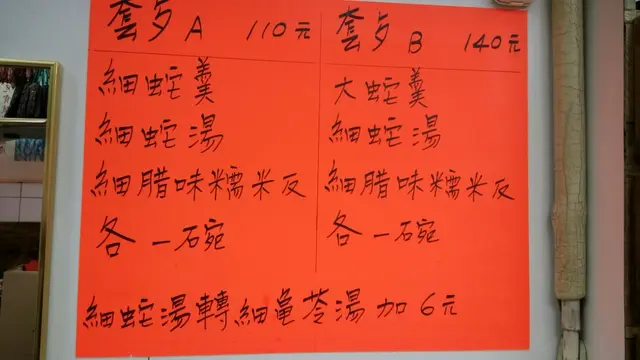 套歺 A 110元
細蛇羹
細蛇湯
細腊味糯米反
各一碗
套歺 B 140元
大蛇羹
細蛇湯
細腊味糯米反
各一碗
細蛇湯轉細亀苓湯加6元